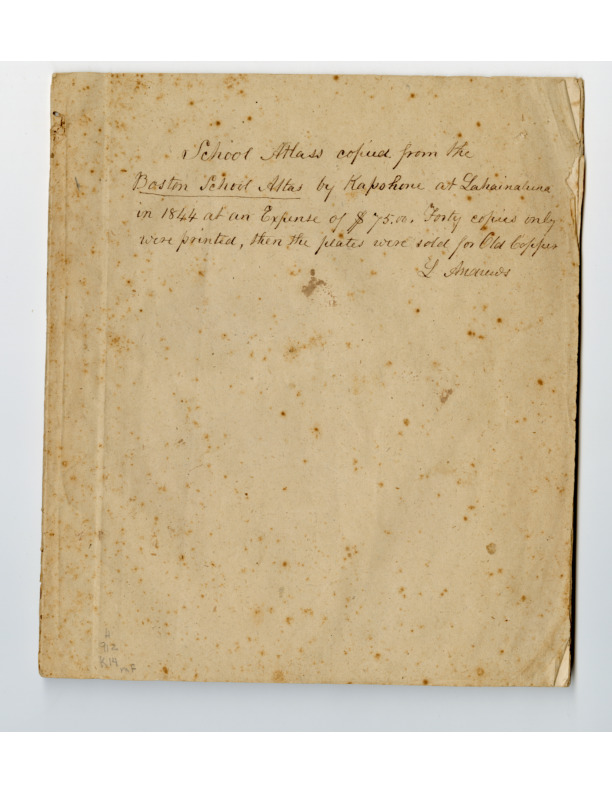 School Atlass copied from the
Boston School Atlas by Kapohono at Lahainaluna
in 1844 at an Expense of $ 75.00. Forty copies only
were printed, then the plates were sold for Old Copper
L Andrews